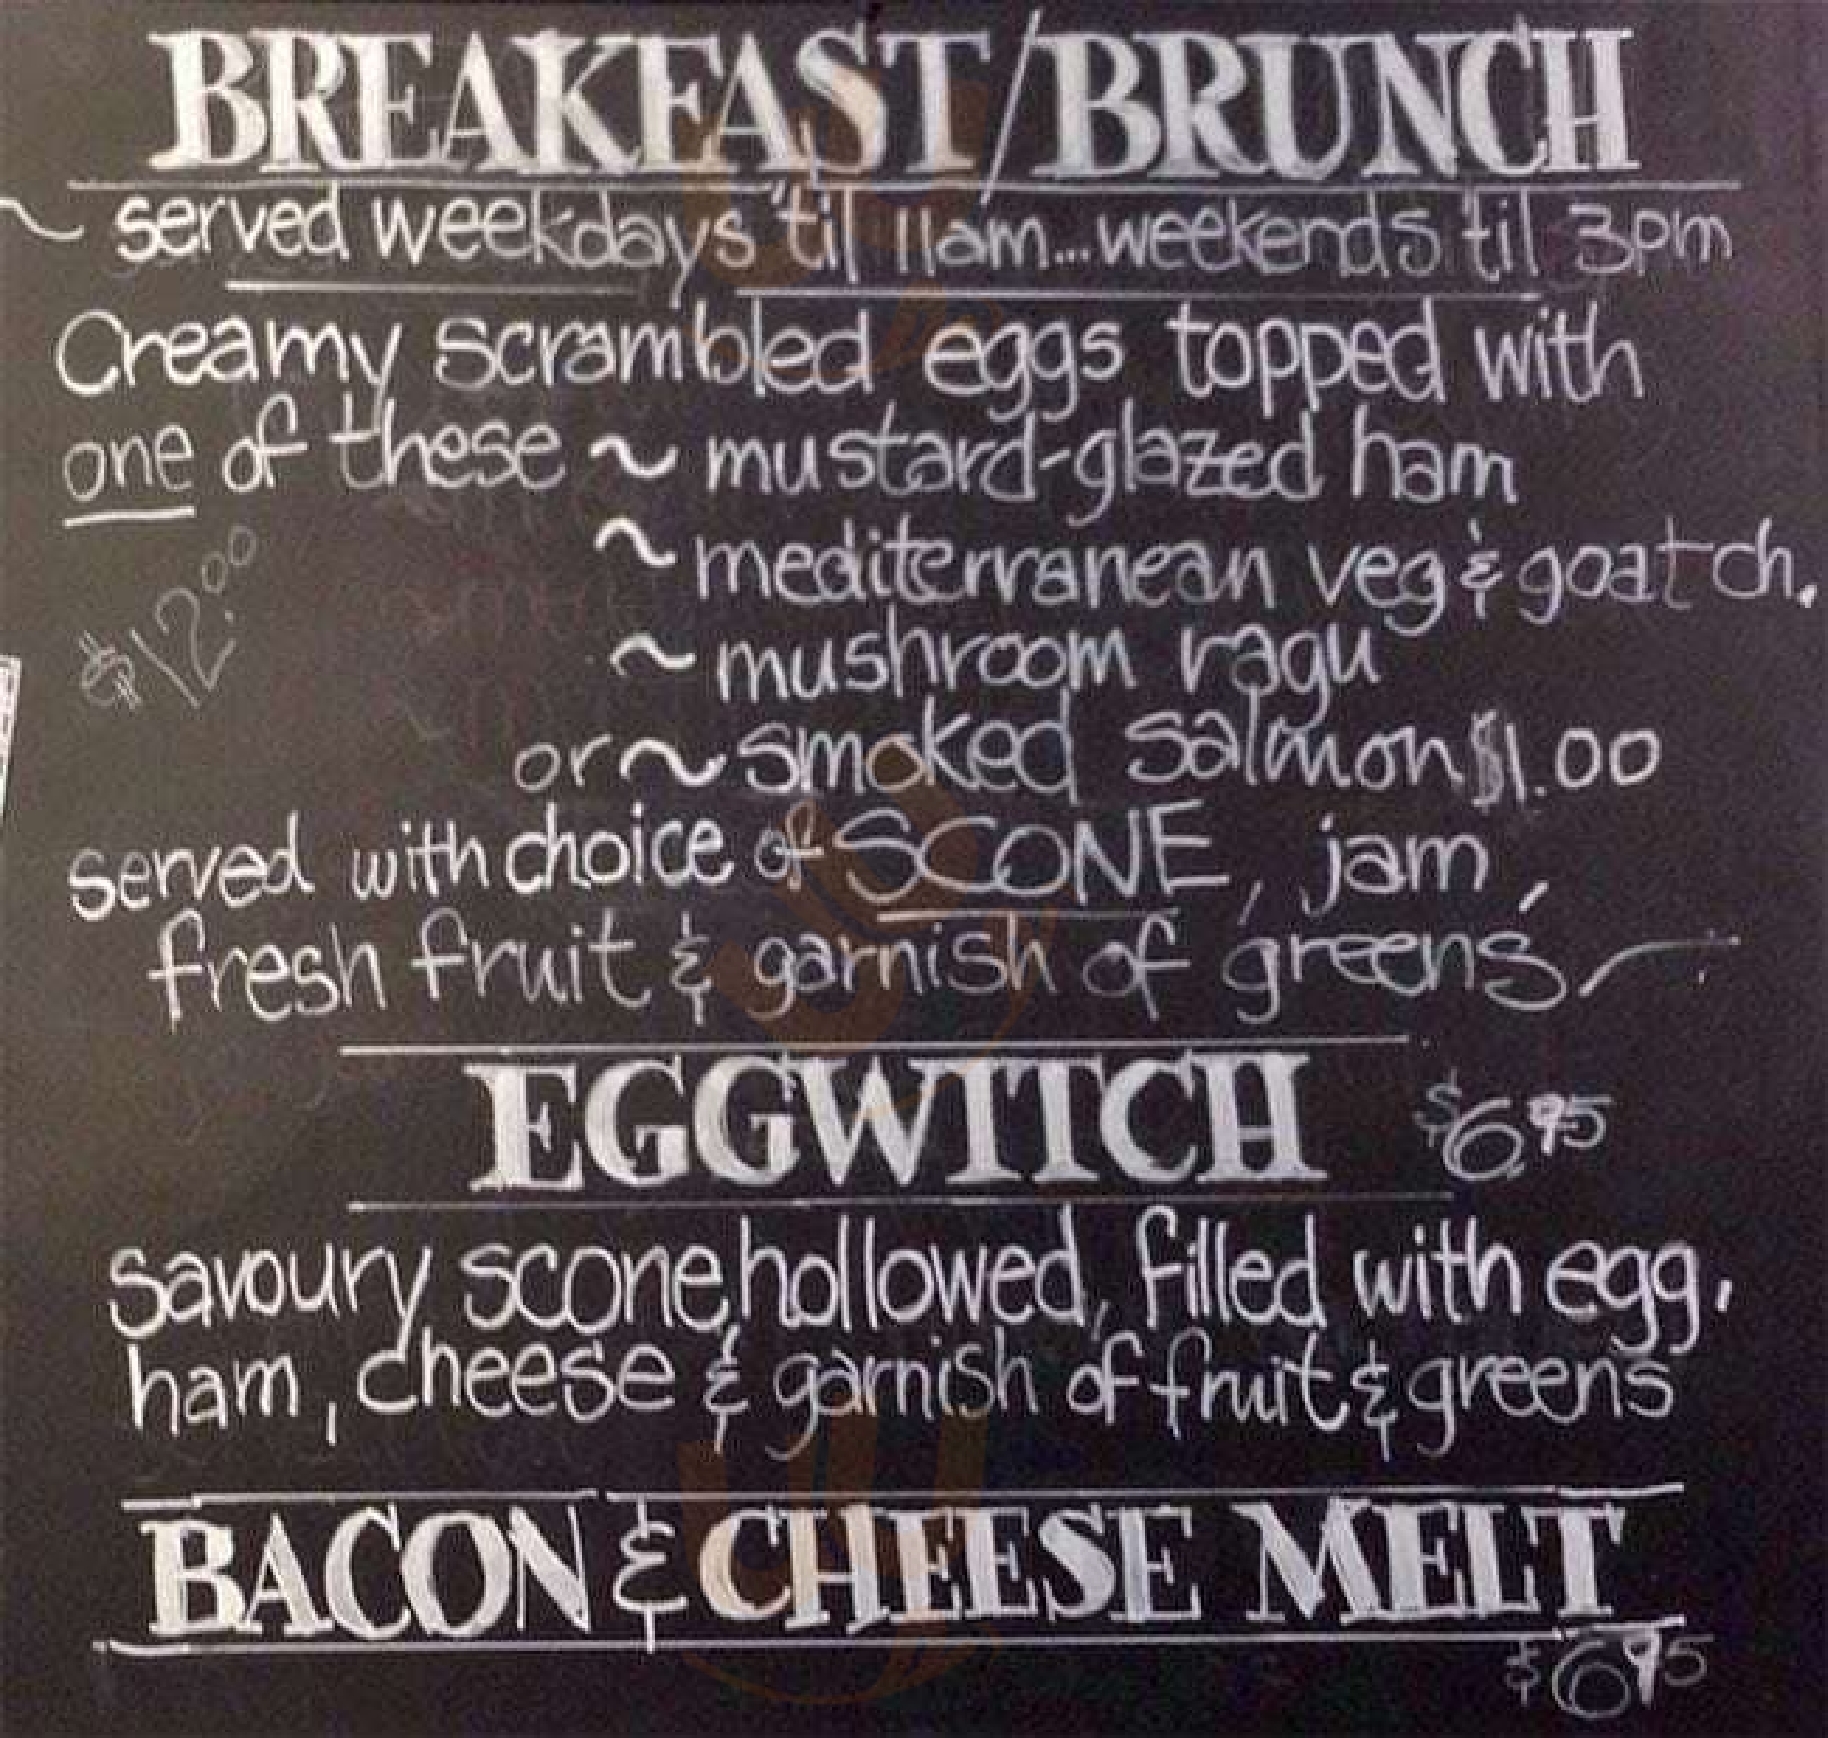 BREAKFAST/BRUNCH
~ served weekdays 'til 11am...weekends 'til 3pm
Creamy scrambled eggs topped with
one of these ~ mustard-glazed ham
~ mediterranean veg & goat ch.
$12.00
~ mushroom ragu
or ~ smoked salmon $1.00
served with choice of SCONE, jam,
fresh fruit & garnish of greens
EGGWITCH $6.95
savoury scone hollowed, filled with egg,
ham, cheese & garnish of fruit & greens
BACON & CHEESE MELT
$6.95